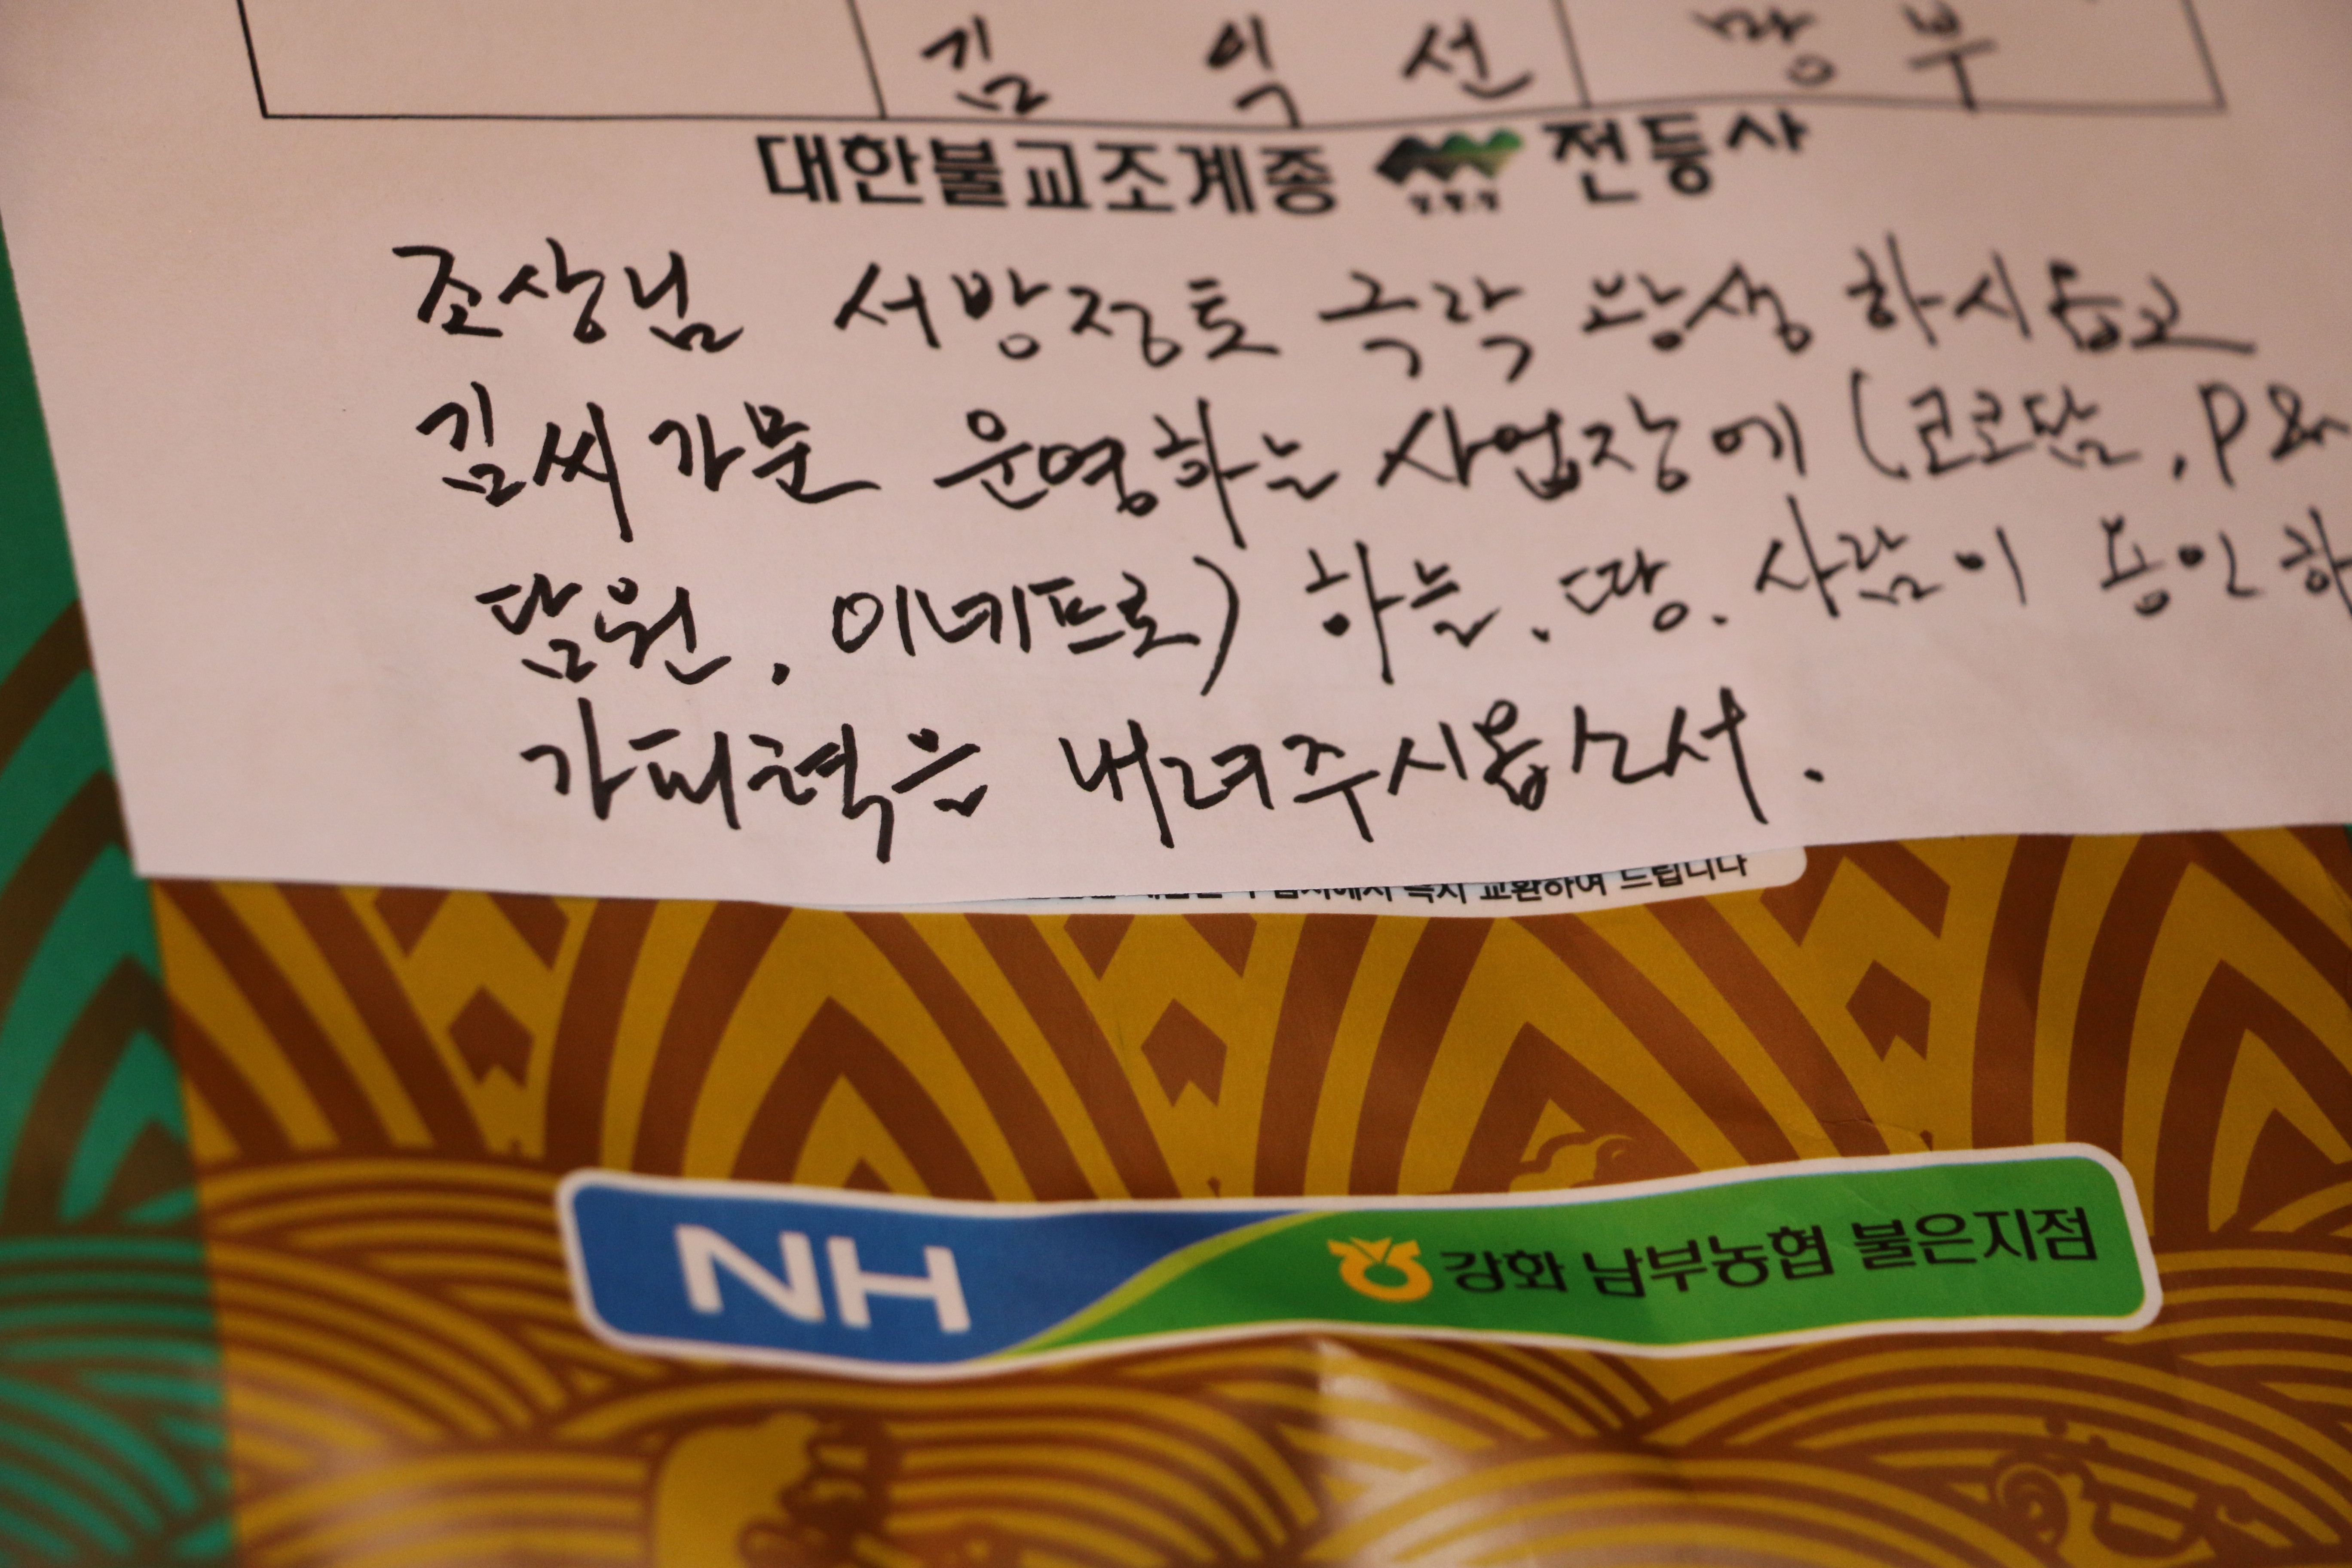 김 익 선 망 부
대한불교조계종 전등사
조상님 서방정토 극락 왕생 하시옵고
김씨가문 운영하는 사업장에 (코코담, P&
담원, 이네프로) 하늘. 땅. 사람이 용인하
가피력은 내려주시옵소서.
교환하여 드립니다
NH 강화 남부농협 불은지점